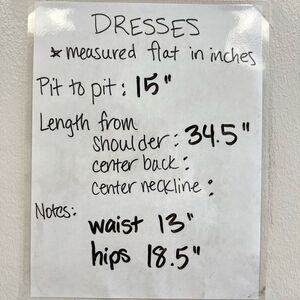 DRESSES
* measured flat in inches
Pit to pit: 15"
Length from
shoulder: 34.5"
center back:
center neckline:
Notes:
waist 13"
hips 18.5"